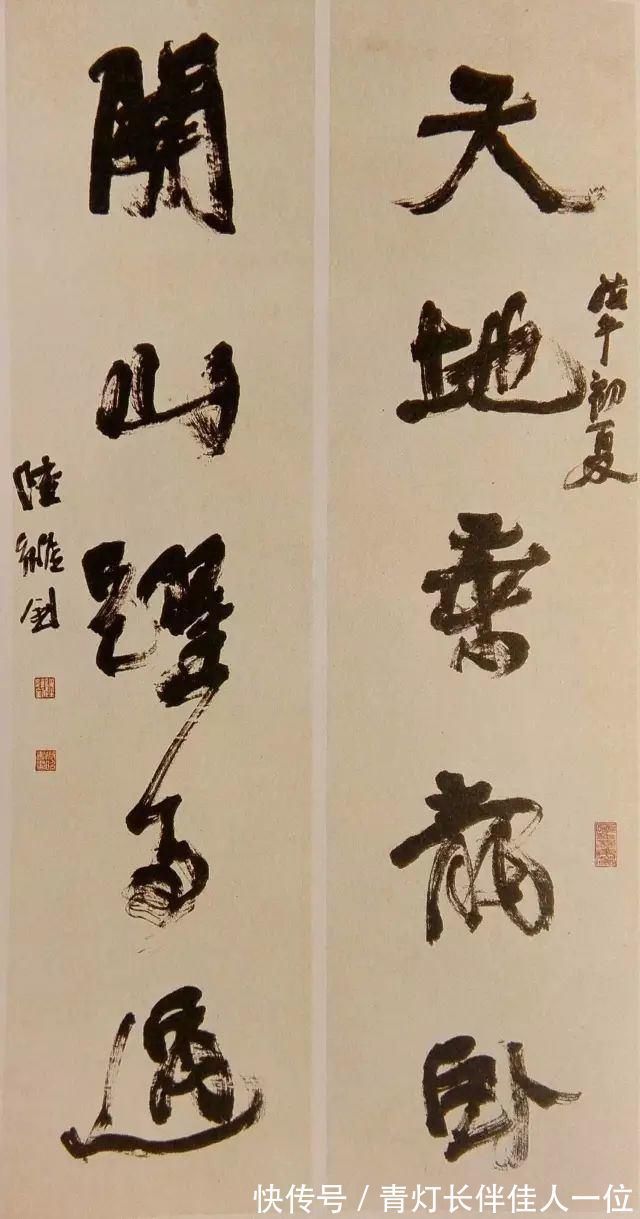 天地乘龍卧
戊午初夏
関山躍馬過
陸維釗
快传号 / 青灯长伴佳人一位